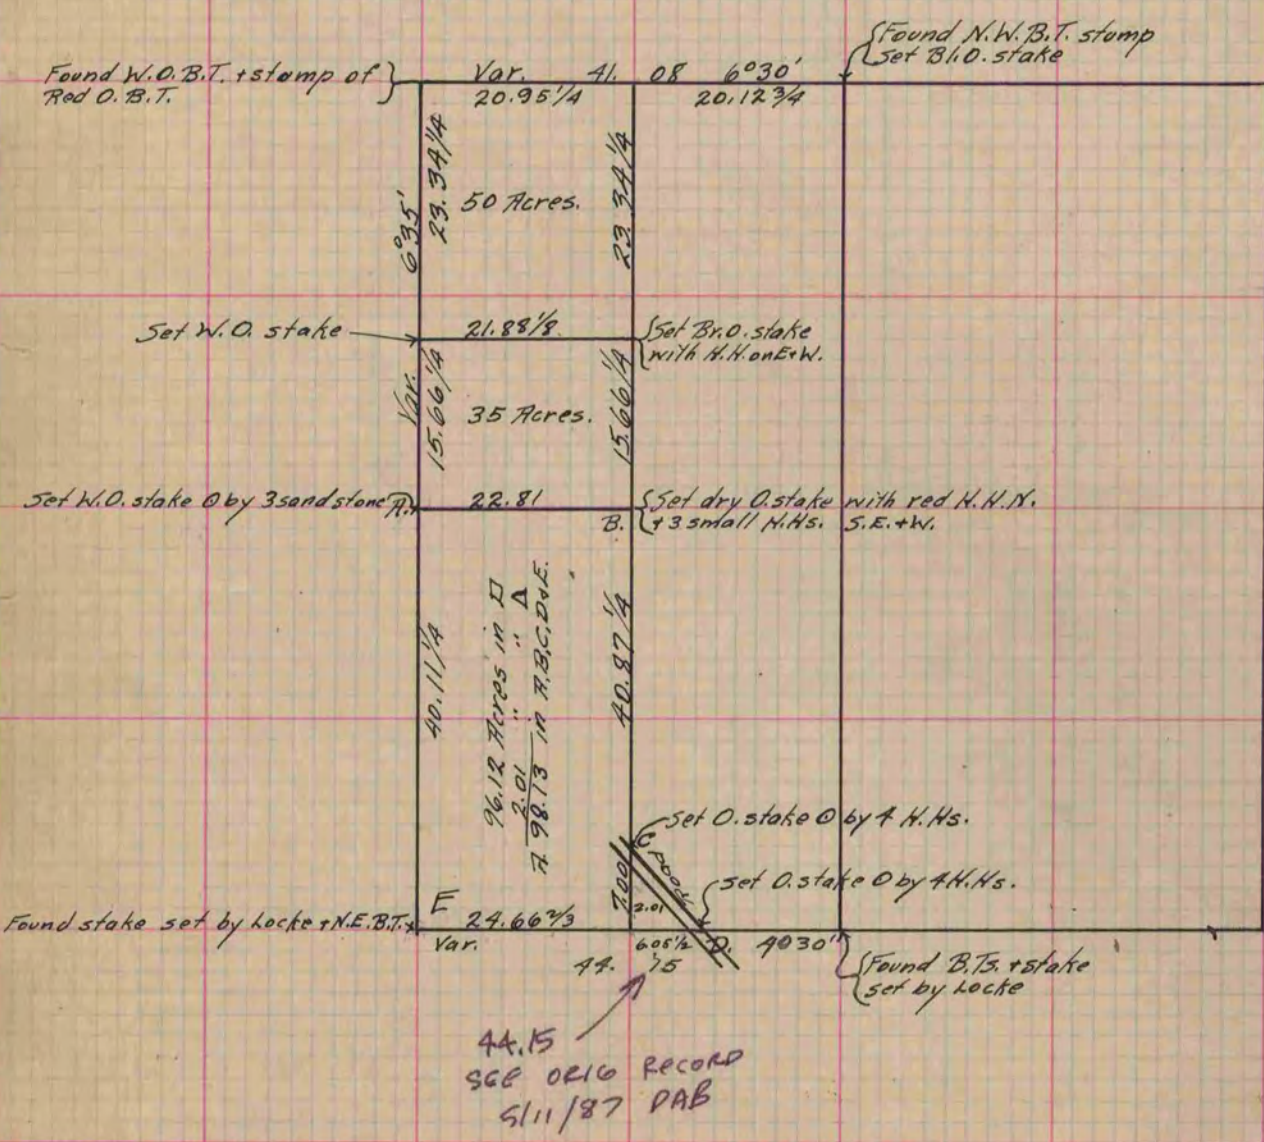 Found N.W.B.T. stump
Set Bl.O. stake
Found W.O.B.T. + stump of
Red O.B.T.
Var. 41. 08 6°30'
20.95 1/4
20.12 3/4
6°35'
23.34 1/4
50 Acres.
23.34 1/4
Set W.O. stake
21.88 1/8
Set Br.O. stake
with H.H. on E+W.
Var.
15.66 1/4
35 Acres.
15.66 1/4
Set W.O. stake ⊙ by 3 sandstone
A.
22.81
B.
Set dry O. stake with red H.H.N.
+ 3 small H.Hs. S.E.+W.
40.11 1/4
96.12 Acres in □
2.01 " " Δ
A 98.13 in A,B,C,D+E.
40.87 1/4
Set O. stake ⊙ by 4 H.Hs.
C
Road
7.00
2.01
set O. stake ⊙ by 4 H.Hs.
Found stake set by Locke + N.E.B.T.
E
24.66 2/3
Var.
6.05 1/2
D.
4°30'
44. 75
Found B.Ts. + stake
set by Locke
44.15
SEE ORIG RECORD
5/11/87 DAB